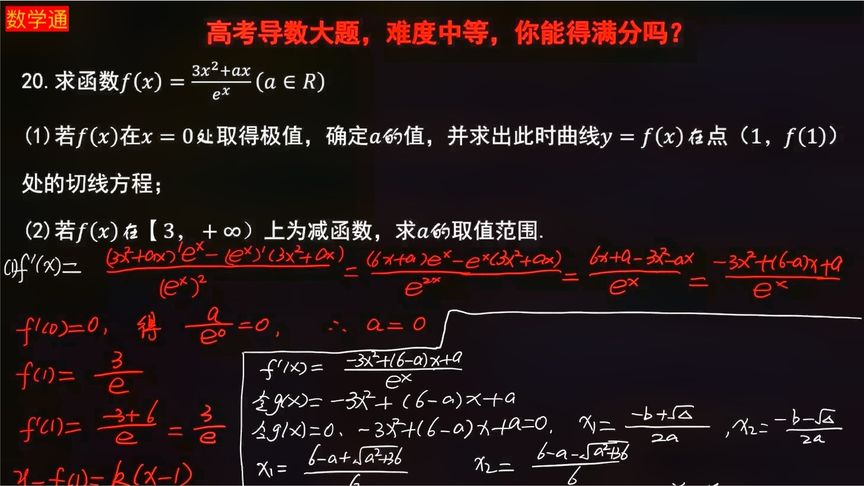 数学通
高考导数大题，难度中等，你能得满分吗？
20.求函数f(x)=\frac{3x²+ax}{eˣ}(a∈R)
(1)若f(x)在x=0处取得极值，确定a的值，并求出此时曲线y=f(x)在点（1，f(1)）
处的切线方程；
(2)若f(x)在【3，+∞）上为减函数，求a的取值范围.
(1)f'(x)=\frac{(3x²+ax)'eˣ-(eˣ)'(3x²+ax)}{(eˣ)²}=\frac{(6x+a)eˣ-eˣ(3x²+ax)}{e²ˣ}=\frac{6x+a-3x²-ax}{eˣ}=\frac{-3x²+(6-a)x+a}{eˣ}
f'(0)=0，得\frac{a}{e⁰}=0，∴a=0
f(1)=\frac{3}{e}
f'(1)=\frac{-3+6}{e}=\frac{3}{e}
y-f(1)=k(x-1)
f'(x)=\frac{-3x²+(6-a)x+a}{eˣ}
令g(x)=-3x²+(6-a)x+a
令g(x)=0、-3x²+(6-a)x+a=0，x₁=\frac{-b+√Δ}{2a}，x₂=\frac{-b-√Δ}{2a}
x₁=\frac{6-a+√a²+36}{6} x₂=\frac{6-a-√a²+36}{6}